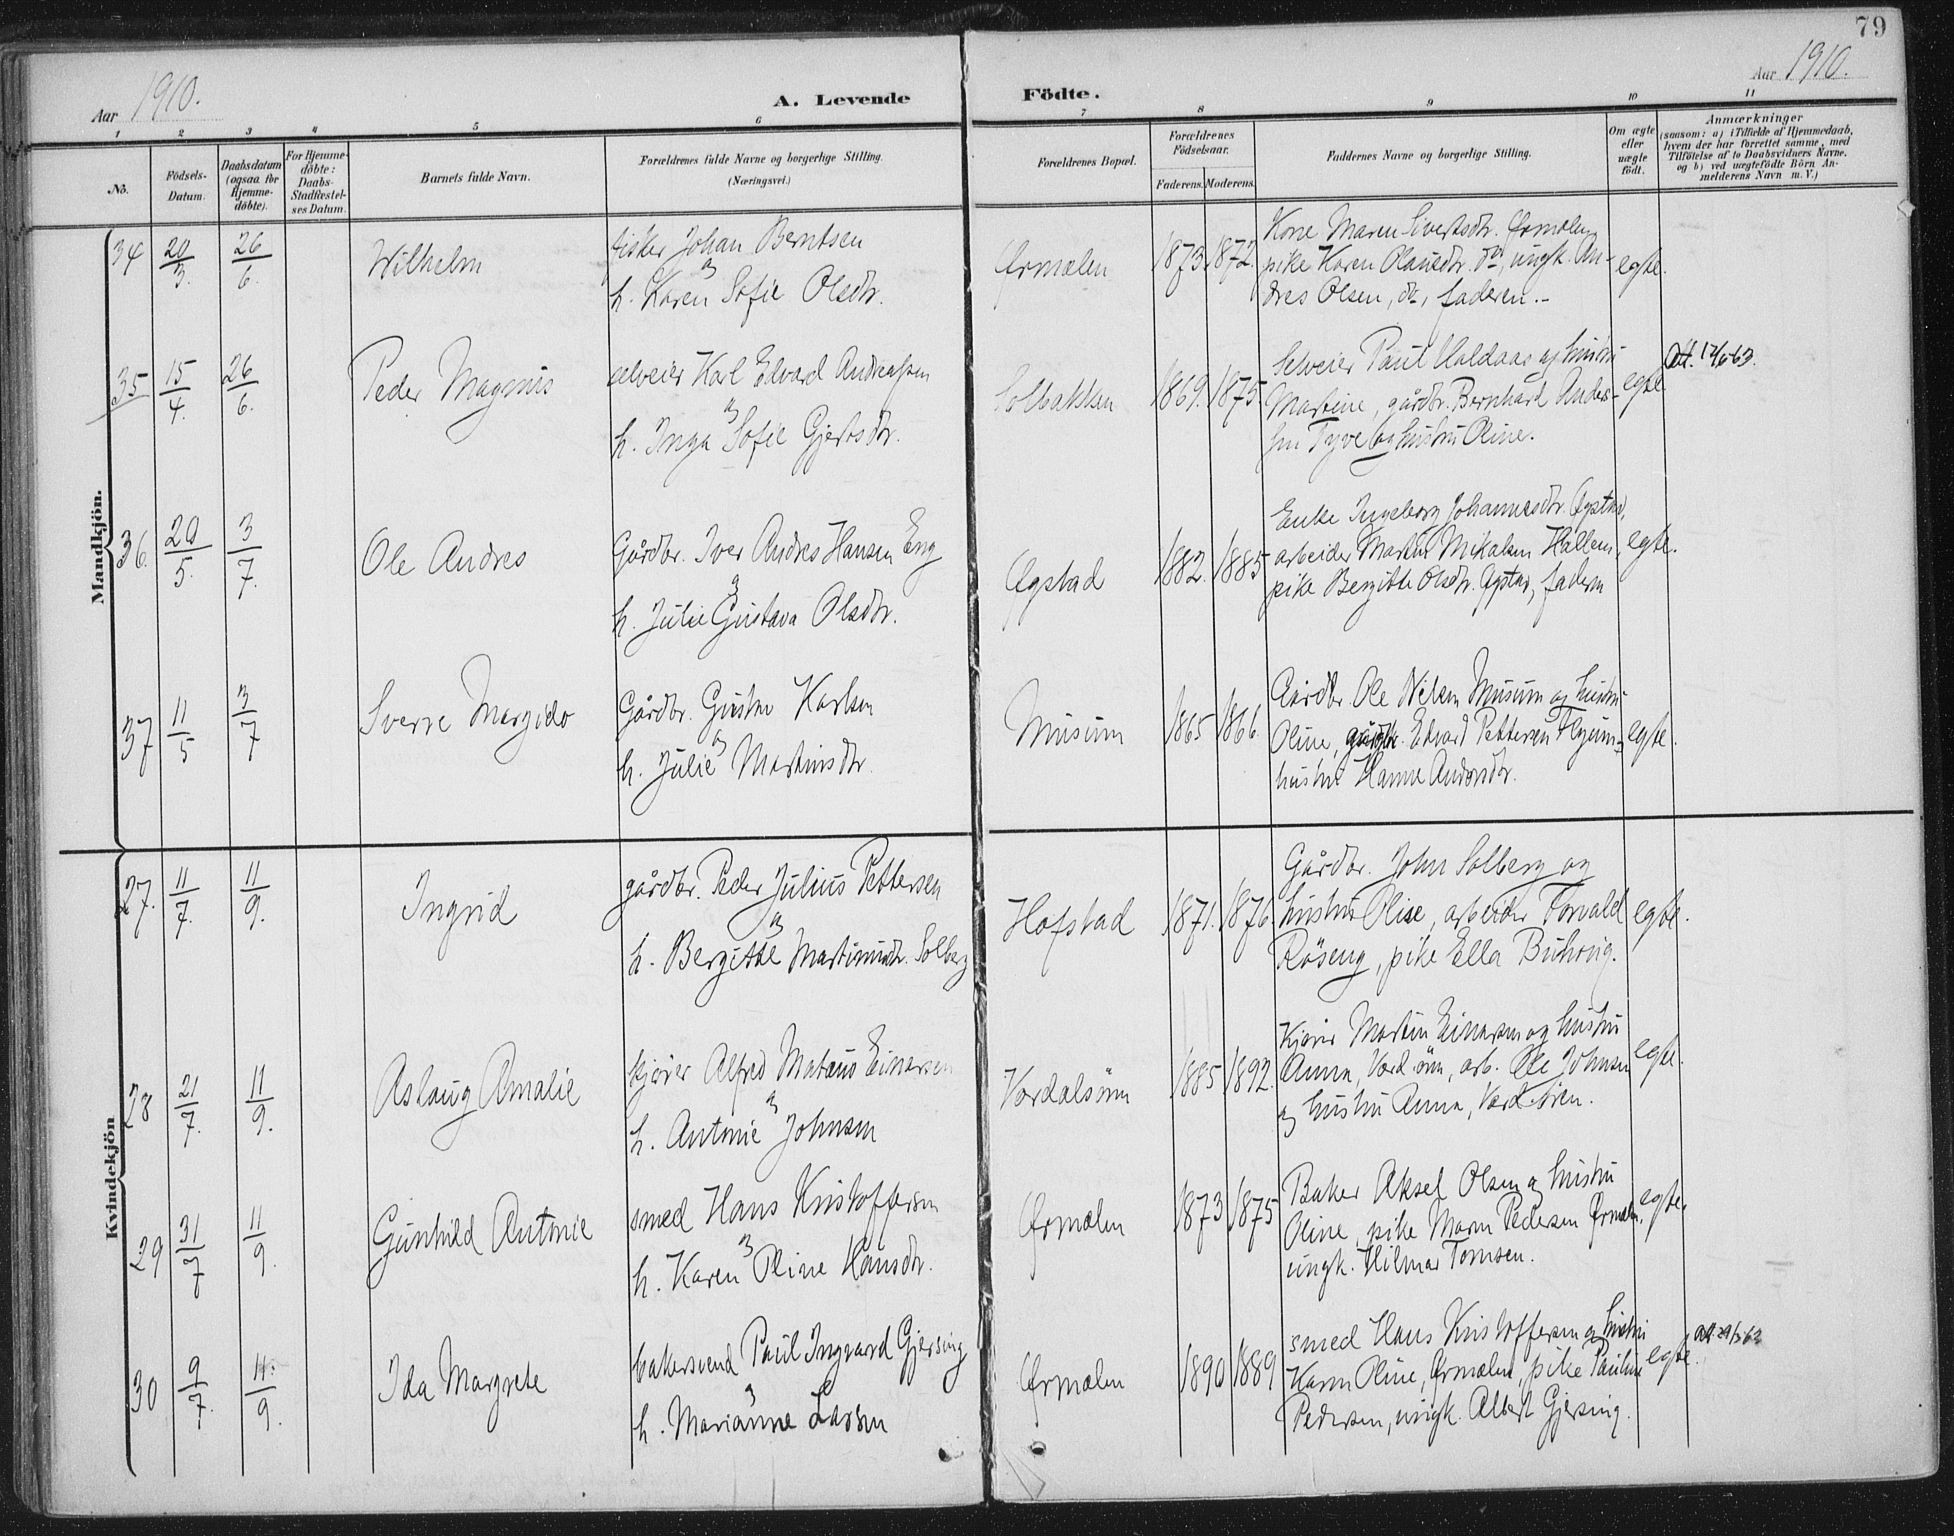 79
Aar 1910.
A. Levende Födte.
Aar 1910.
1 2 3 4 5 6 7 8 9 10 11
No.
Födsels-
Datum.
Daabsdatum
(ogsaa for
Hjemme-
döbte).
For Hjemme-
döbte:
Daabs-
Stadfæstel-
ses Datum.
Barnets fulde Navn.
Forældrenes fulde Navne og borgerlige Stilling.
(Næringsvei.)
Forældrenes Bopæl.
Forældrenes
Födselsaar.
Faderens. Moderens.
Faddernes Navne og borgerlige Stilling.
Om ægte
eller
uægte
født.
Anmærkninger
(saasom: a) i Tilfælde af Hjemmedaab,
hvem der har forrettet samme, med
Tilföielse af to Daabsvidners Navne.
og b) ved uægtefödte Börn An-
melderens Navn m. V.)
Mandkjön.
34 20/3. 26/6. Wilhelm
fisker Johan Berntsen
h. Karen Sofie Olsdtr.
Ørmelen 1873. 1872.
Kone Maren Sivertsdtr. Ørmelen,
pike Karen Olausdtr. do, ungk. An-
dres Olsen, do, faderen.-
egte.
35 15/4. 26/6. Peder Magnus
selveier Karl Edvard Andreassen
h. Inga Sofie Gjertsdtr.
Solbakken 1869. 1875.
Selveier Paul Haldaas og hustru
Martine, gårdbr. Bernhard Anders-
sen Tyve og hustru Oline.
egte
Att.
36. 20/5. 3/7. Ole Andres
Gårdbr. Iver Andres Hansen Eng
h. Julie Gustava Olsdtr.
Øgstad 1882. 1885
Enke Ingeborg Johannesdtr. Øgstad,
arbeider Martin Mikalsen Hallem,
pike Bergitte Olsdtr. Øgstad, faderen
egte.
37 11/5 3/7 Sverre Margido
Gårdbr. Gustav Karlsen
h. Julie Martinsdtr.
Musum 1865 1866.
Gårdbr. Ole Nilsen Musum og hustru
Oline, gårdbr. Edvard Pettersen
hustru Hanna Andersdtr.
egte.
Kvindekjön
27. 11/7. 11/9. Ingrid
gårdbr. Peder Julius Pettersen
h. Bergitte Martinusdtr. Solberg
Hofstad 1871. 1876.
Gårdbr. John Solberg og
hustru Olise, arbeider Torvald
Röseng, pike Ella Buhrig.
egte.
28 21/7. 11/9. Aslaug Amalie
kjører Alfred Mateus Einarsen
h. Antonie Johnsen
Værdalsøren 1885 1892.
Kjører Martin Einarsen og hustru
Anna, Værdøren, arb. Ole Johnsen
og hustru Anna, Værdsøren.
egte.
29 31/7 11/9. Gunhild Antonie
smed Hans Kristoffersen
h. Karen Oline Hansdtr.
Ørmelen 1873 1875
Baker Aksel Olsen og hustru
Oline, pike Maren Pedersen Ørmelen,
ungk. Hilmar Tomsen.
egte.
30 9/7. 11/9. Ida Margrete
bakersvend Paul Ingvard Gjersing
h. Marianne Larsen
Ørmelen 1890 1889
smed Hans Kristoffersen og hustru
Karen Oline, Ørmelen, pike Pauline
Pedersen, ungk. Albert Gjersing.
egte.
att